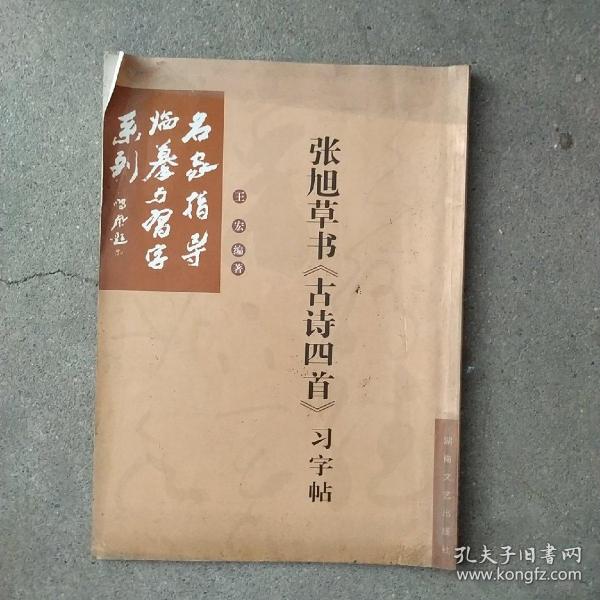 名家指导
临摹与习字
系列
王宏编著
张旭草书《古诗四首》习字帖
湖南文艺出版社
孔夫子旧书网
www.kongfz.com